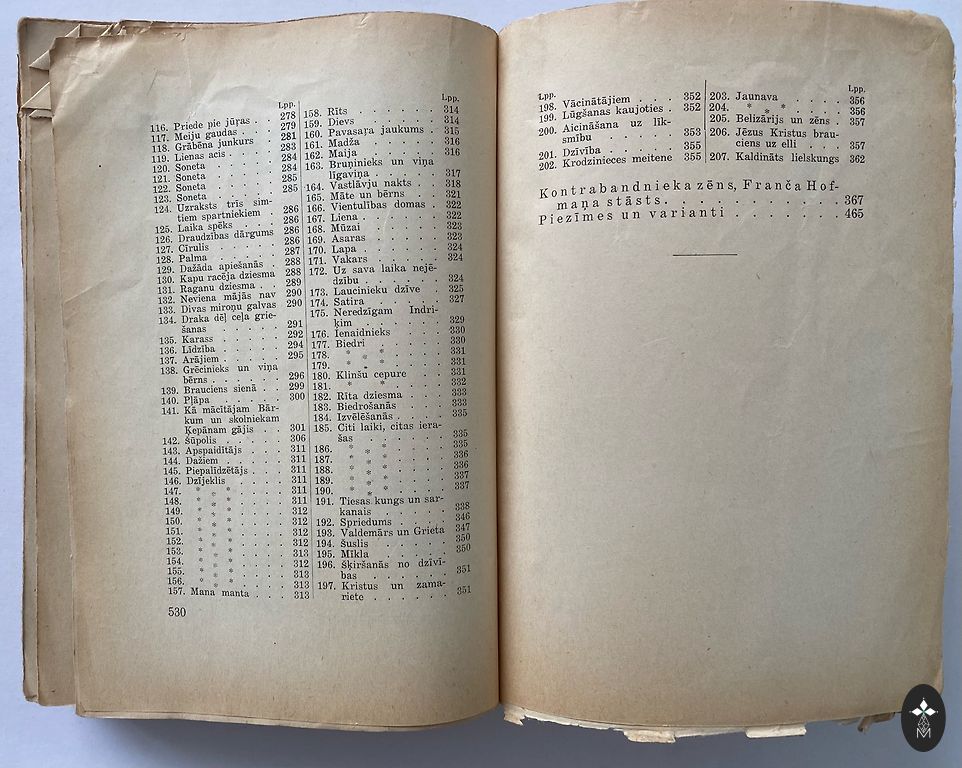 Lpp.
116. Priede pie jūras . . 278
117. Meiju gaudas . . . 279
118. Grābēna junkurs . . 281
119. Lienas acis . . . . 283
120. Soneta . . . . . 284
121. Soneta . . . . . 284
122. Soneta . . . . . 285
123. Soneta . . . . . 285
124. Uzraksts trīs sim-
tiem spartniekiem . 286
125. Laika spēks . . . . 286
126. Draudzības dārgums 286
127. Cīrulis . . . . . 286
128. Palma . . . . . 287
129. Dažāda apiešanās . . 288
130. Kapu racēja dziesma 288
131. Raganu dziesma . . 289
132. Neviena mājās nav 290
133. Divas miroņu galvas 290
134. Draka dēļ ceļa grie-
šanas . . . . . 291
135. Karass . . . . . 292
136. Līdzība . . . . . 294
137. Arājiem . . . . . 295
138. Grēcinieks un viņa
bērns . . . . . . 296
139. Brauciens sienā . . 299
140. Pļāpa . . . . . 300
141. Kā mācītājam Bār-
kum un skolniekam
Ķepānam gājis . . . 301
142. Šūpolis . . . . . 306
143. Apspaidītājs . . . . 311
144. Dažiem . . . . . 311
145. Piepalīdzētājs . . . 311
146. Dzījeklis . . . . . 311
147. * * * . . . . 311
148. * * * . . . . 311
149. * * * . . . . 312
150. * * * . . . . 312
151. * * * . . . . 312
152. * * * . . . . 312
153. * * * . . . . 313
154. * * * . . . . 312
155. * * * . . . . 313
156. * * * . . . . 313
157. Mana manta . . . . 313
530
Lpp.
158. Rīts . . . . . . 314
159. Dievs . . . . . . 314
160. Pavasaŗa jaukums . 315
161. Madža . . . . . 316
162. Maija . . . . . . 316
163. Bruņinieks un viņa
līgaviņa . . . . . 317
164. Vastlāvju nakts . . . 318
165. Māte un bērns . . . 321
166. Vientulības domas . 322
167. Liena . . . . . . 322
168. Mūzai . . . . . . 323
169. Asaras . . . . . 323
170. Lapa . . . . . . 324
171. Vakars . . . . . 324
172. Uz sava laika nejē-
dzību . . . . . . 324
173. Laucinieku dzīve . . 325
174. Satira . . . . . . 327
175. Neredzīgam Indri-
ķim . . . . . . 329
176. Ienaidnieks . . . . 330
177. Biedri . . . . . . 330
178. * * * . . . . 331
179. * * * . . . . 331
180. Klinšu cepure . . . 331
181. * * * . . . . 332
182. Rīta dziesma . . . 333
183. Biedrošanās . . . . 333
184. Izvēlēšanās . . . . 335
185. Citi laiki, citas iera-
šas . . . . . . 335
186. * * * . . . . 335
187. * * * . . . . 336
188. * * * . . . . 336
189. * * * . . . . 337
190. * * * . . . . 337
191. Tiesas kungs un sar-
kanais . . . . . 338
192. Spriedums . . . . 346
193. Valdemārs un Grieta 347
194. Šuslis . . . . . . 350
195. Mīkla . . . . . . 350
196. Šķiršanās no dzīvī-
bas . . . . . . 351
197. Kristus un zama-
riete . . . . . . 351
Lpp.
198. Vācinātājiem . . . 352
199. Lūgšanas kaujoties . 352
200. Aicināšana uz līk-
smību . . . . . 353
201. Dzīvība . . . . . 355
202. Krodzinieces meitene 355
Lpp.
203. Jaunava . . . . . 356
204. * * * . . . . 356
205. Belizārijs un zēns . . 357
206. Jēzus Kristus brau-
ciens uz elli . . . . 357
207. Kaldināts lielskungs 362
Kontrabandnieka zēns, Franča Hof-
maņa stāsts. . . . . . . . . . 367
Piezīmes un varianti . . . . . . . 465
M